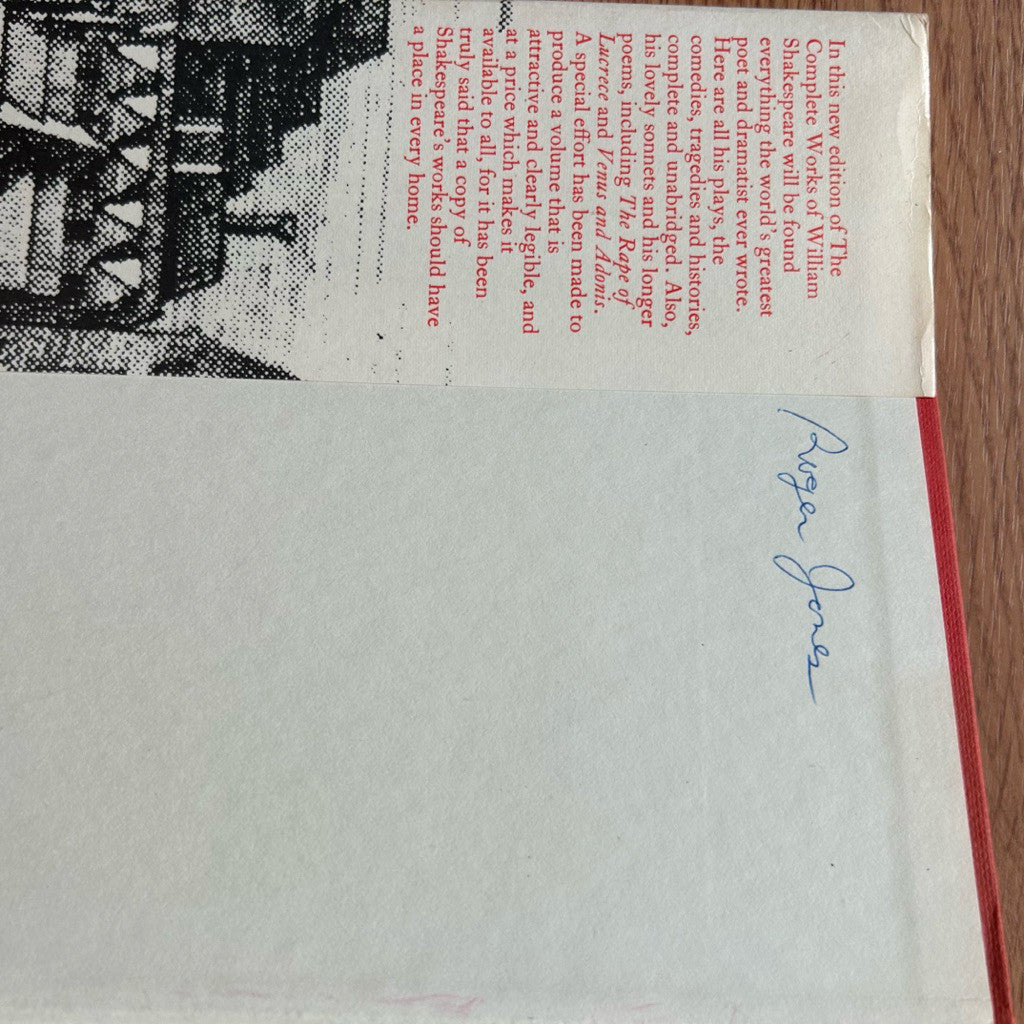 In this new edition of The
Complete Works of William
Shakespeare will be found
everything the world's greatest
poet and dramatist ever wrote.
Here are all his plays, the
comedies, tragedies and histories,
complete and unabridged. Also,
his lovely sonnets and his longer
poems, including The Rape of
Lucrece and Venus and Adonis.
A special effort has been made to
produce a volume that is
attractive and clearly legible, and
at a price which makes it
available to all, for it has been
truly said that a copy of
Shakespeare's works should have
a place in every home.
Roger Jones